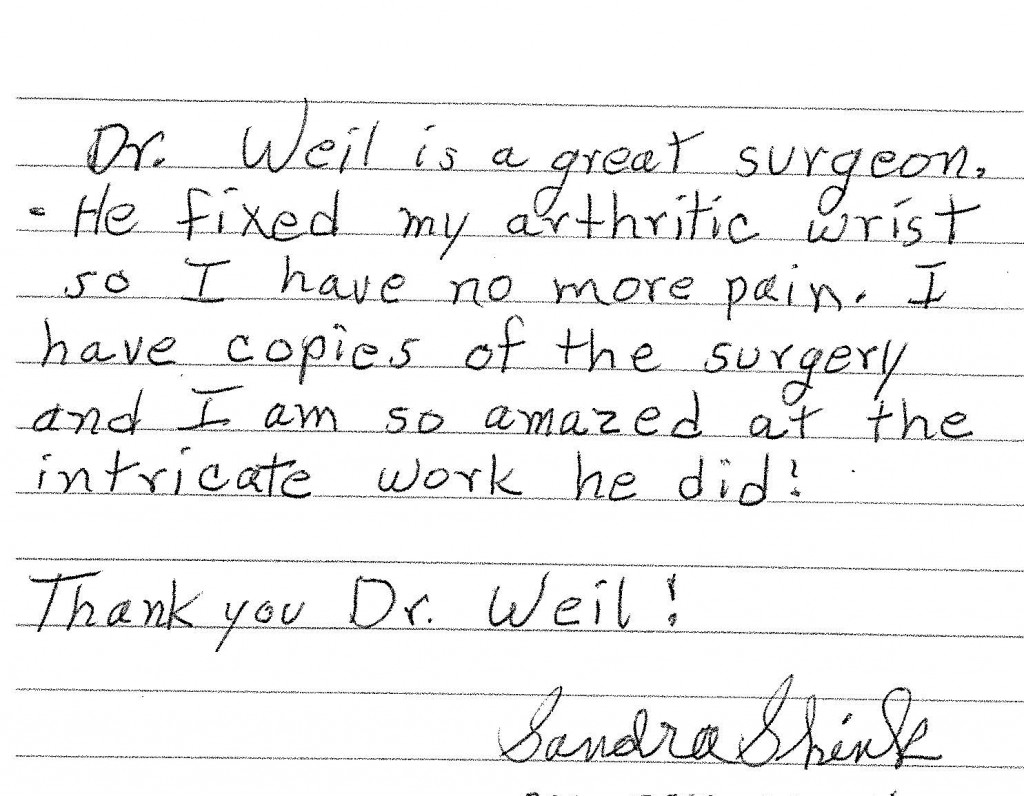 Dr. Weil is a great surgeon.
He fixed my arthritic wrist
so I have no more pain. I
have copies of the surgery
and I am so amazed at the
intricate work he did!
Thank you Dr. Weil!
Sandra Shink